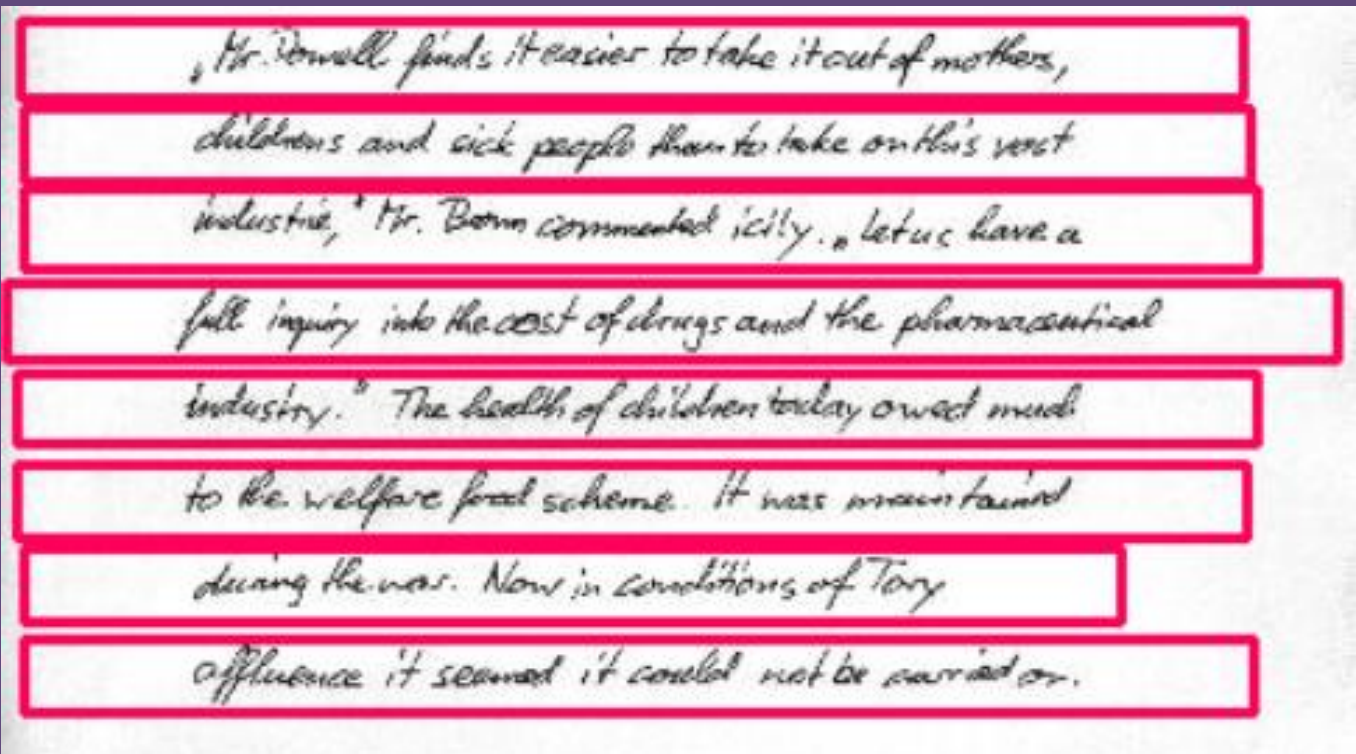 „Mr. Powell finds it easier to take it out of mothers,
childrens and sick people than to take on this vast
industrie," Mr. Brown commented icily. „Let us have a
full inquiry into the cost of drugs and the pharmaceutical
industry." The health of children today owed much
to the welfare food scheme. It was maintained
during the war. Now in conditions of Tory
affluence it seemed it could not be carried on.